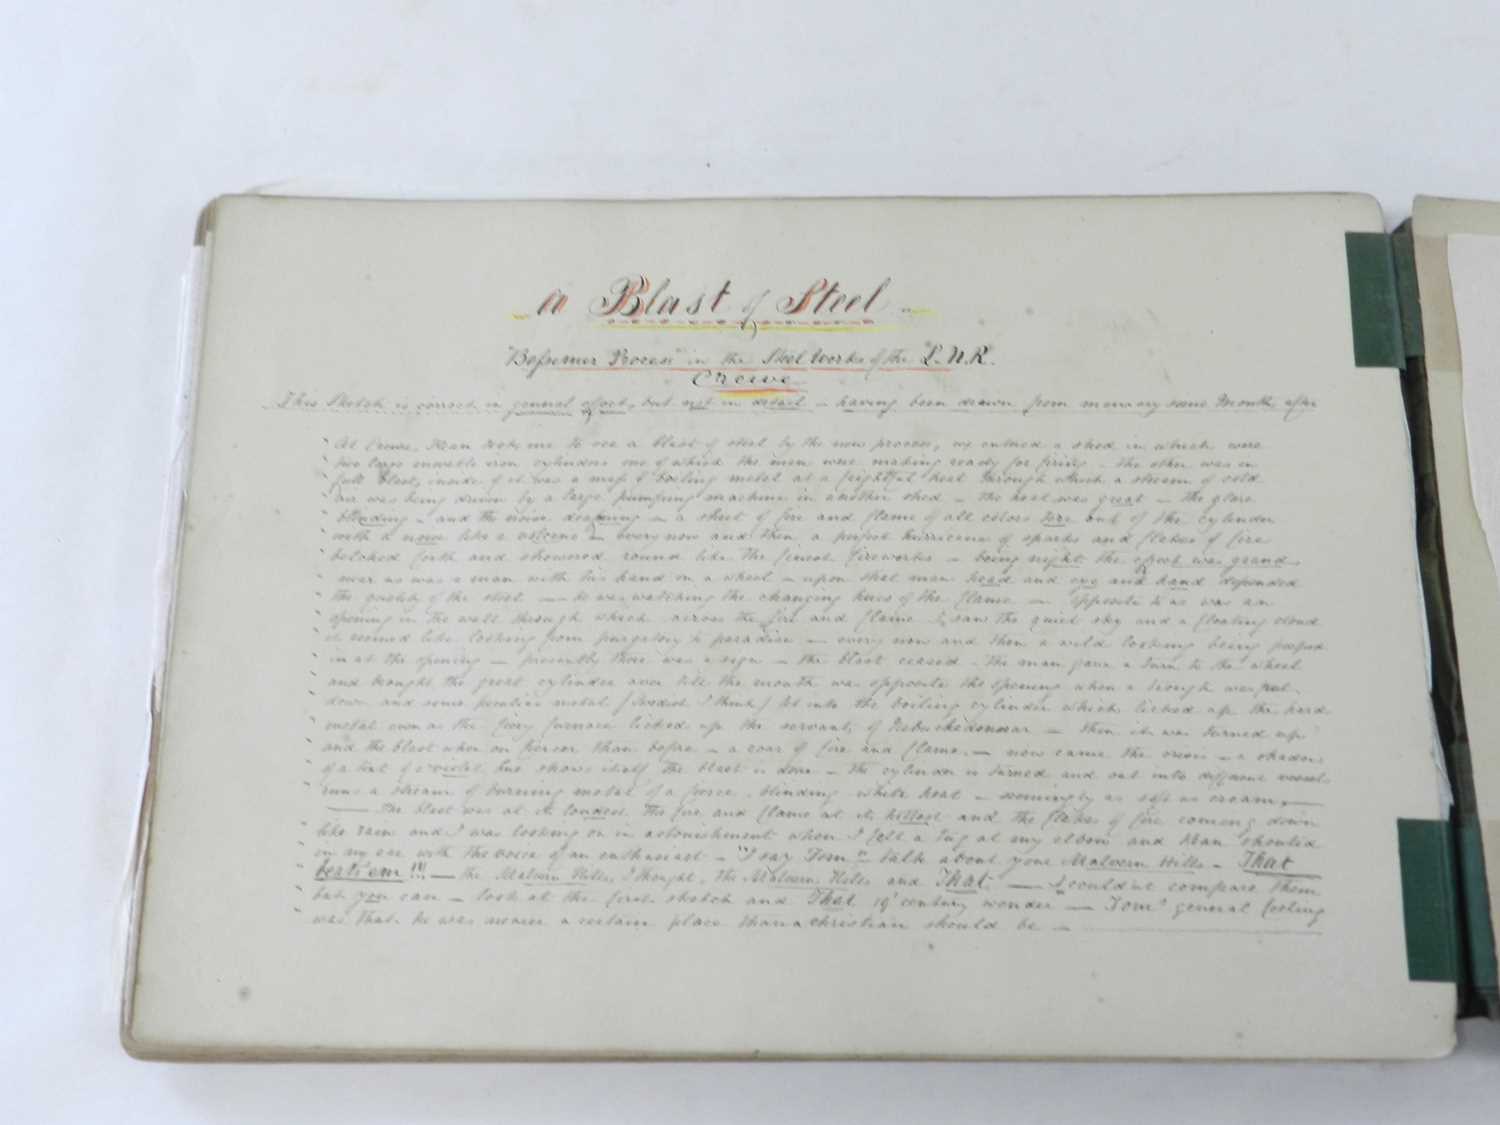 A Blast of Steel -
"Bessemer Process" in the Steel Works of the "L.N.R.
Crewe
This Sketch is correct in general effect, but not in detail - having been drawn from memory some Month after
At Crewe, Kean took me to see a blast of steel by the new process, we entered a shed in which were
two large movable iron cylinders one of which the men were making ready for firing - the other was in
full blast, inside of it was a mass of boiling metal at a frightful heat through which a stream of cold
air was being driven by a large pumping machine in another shed - the heat was great - the glare
blinding - and the noise deafening - a sheet of fire and flame of all colors tore out of the cylinder
with a noise like a volcano - every now and then a perfect hurricane of sparks and flakes of fire
belched forth and showered round like the finest fireworks - being night the effect was grand -
near us was a man with his hand on a wheel - upon that mans head and eye and hand depended
the quality of the steel - he was watching the changing hues of the flame - Opposite to us was an
opening in the wall through which across the fire and flame I saw the quiet sky and a floating cloud
it seemed like looking from purgatory to paradise - every now and then a wild looking being passed
in at the opening - presently there was a sign - the blast ceased - the man gave a turn to the wheel
and brought the great cylinder over till the mouth was opposite the opening when a trough was put
down and some peculiar metal (Swedish I think) let into the boiling cylinder which licked up the hard
metal even as the fiery furnace licked up the servants of Nebuchadonosar - then it was turned up
and the blast when on fiercer than before - a roar of fire and flame - now came the crisis - a shadow
of a tint of a violet hue shows itself the blast is done - the cylinder is turned and out into different vessels
runs a stream of burning metal of a fierce, blinding white heat - seemingly as soft as cream -
- The blast was at its loudest the fire and flame at its hottest and the flakes of fire coming down
like rain and I was looking on in astonishment when I felt a tug at my elbow and Kean shouted
in my ear with the voice of an enthusiast - "I say Tom" - talk about your Malvern Hills - That
beats em !!! - the Malvern Hills, I thought, the Malvern Hills and That - I couldn't compare them
but you can - look at the first sketch and That 19th century wonder - Tom's general feeling
was that he was nearer a certain place than a christian should be -